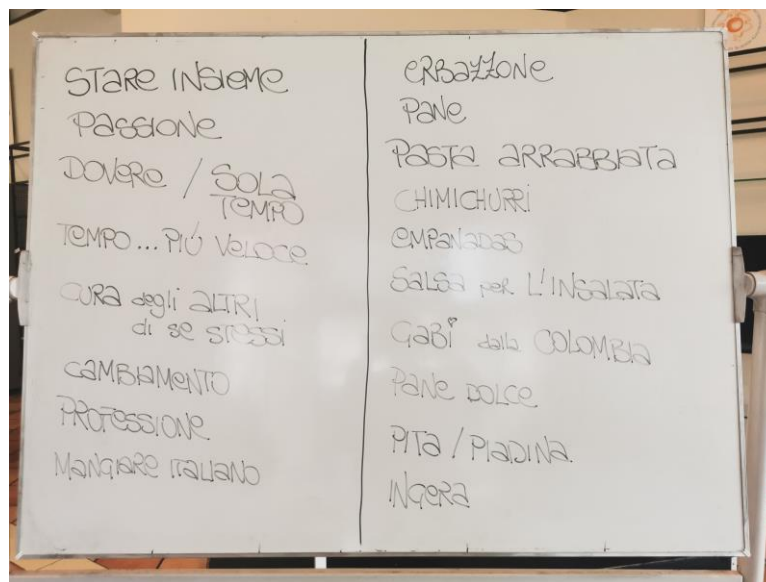 STARE INSIEME
PASSIONE
DOVERE / SOLA
TEMPO
TEMPO... PIÚ VELOCE
CURA degli ALTRI
di se STESSI
CAMBIAMENTO
PROFESSIONE
MANGIARE ITALIANO
ERBAZZONE
PANE
PASTA ARRABBIATA
CHIMICHURRI
EMPANADAS
SALSA PER L'INSALATA
GABI dalla COLOMBIA
PANE DOLCE
PITA / PIADINA.
INGERA